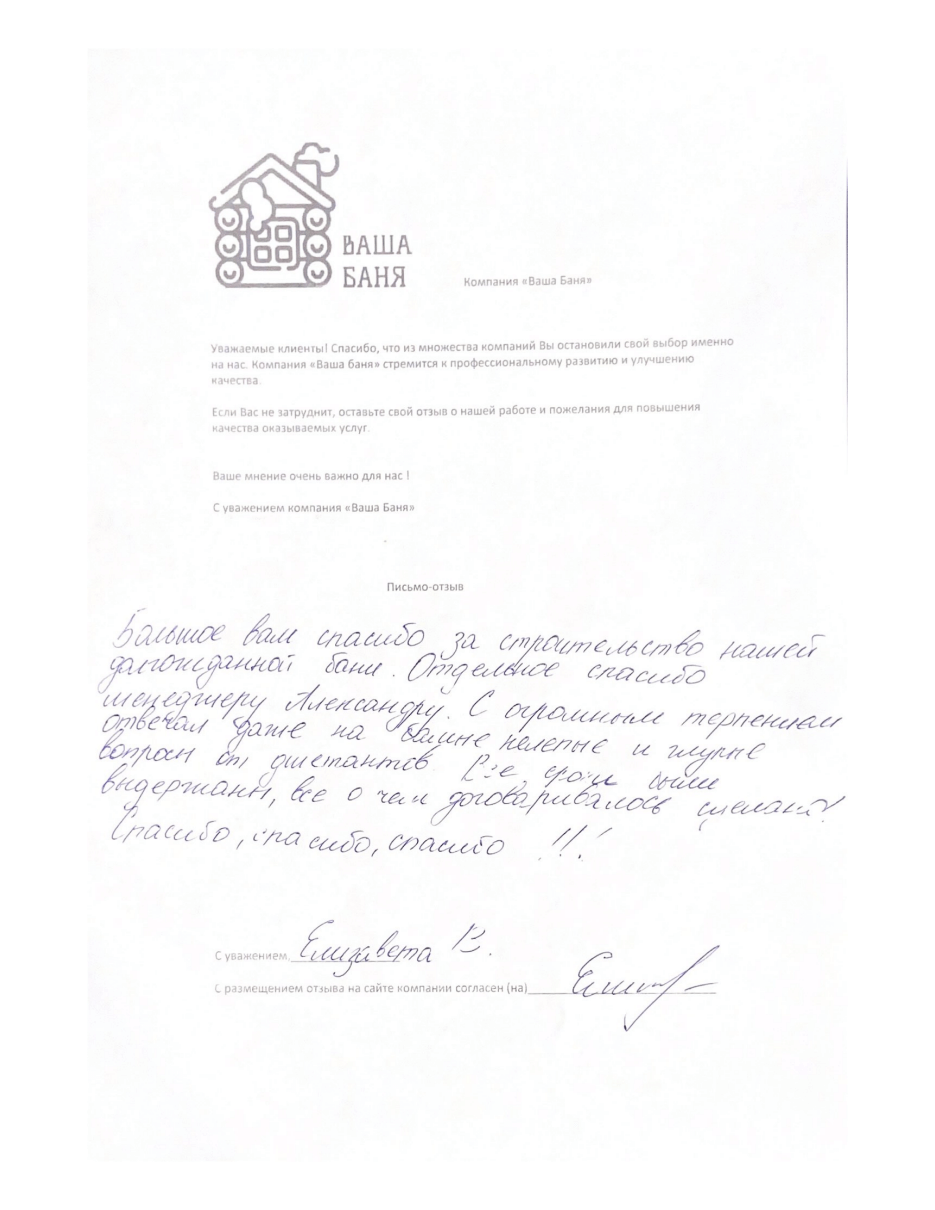 ВАША
БАНЯ
Компания «Ваша Баня»
Уважаемые клиенты! Спасибо, что из множества компаний Вы остановили свой выбор именно
на нас. Компания «Ваша баня» стремится к профессиональному развитию и улучшению
качества.
Если Вас не затруднит, оставьте свой отзыв о нашей работе и пожелания для повышения
качества оказываемых услуг.
Ваше мнение очень важно для нас !
С уважением компания «Ваша Баня»
Письмо-отзыв
Большое вам спасибо за строительство нашей
долгожданной бани. Отдельное спасибо
менеджеру Александру. С огромным терпением
отвечал даже на самые нелепые и глупые
вопросы от дилетантов. Все сроки были
выдержаны, все о чем договаривалось сделали!
Спасибо, спасибо, спасибо !!!
С уважением, Елизавета В.
С размещением отзыва на сайте компании согласен (на)